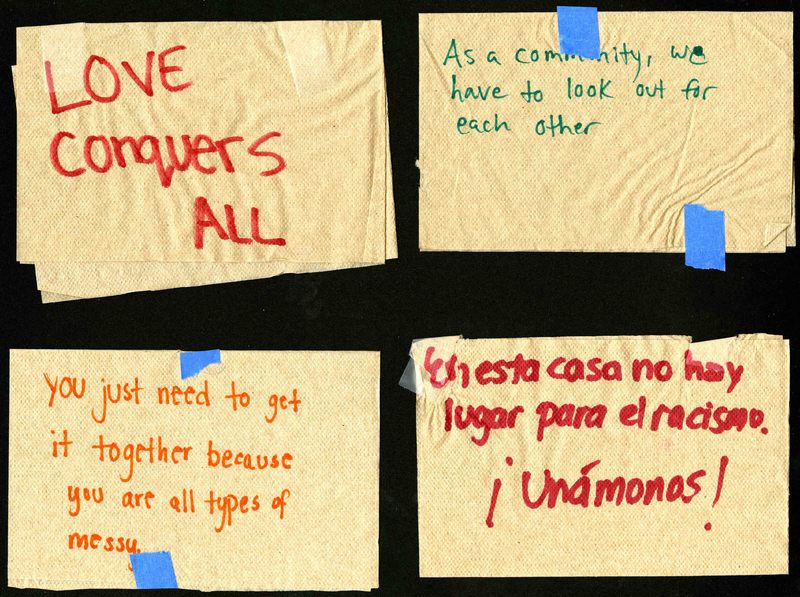 LOVE
Conquers
ALL
As a community, we
have to look out for
each other
you just need to get
it together because
you are all types of
messy.
En esta casa no hay
lugar para el racismo.
¡Unámonos!